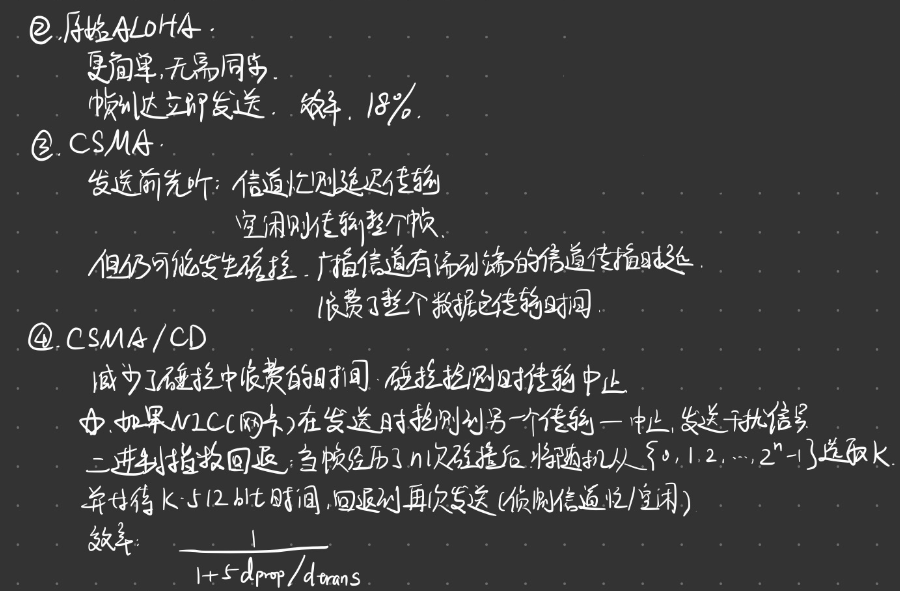 ②.原始ALOHA.
更简单,无需同步.
帧到达立即发送. 效率. 18%.
③.CSMA.
发送前先听: 信道忙则延迟传输
空闲则传输整个帧.
但仍可能发生碰撞. 广播信道有端到端的信道传播时延.
浪费了整个数据包传输时间.
④.CSMA/CD
减少了碰撞中浪费的时间.碰撞检测时传输中止
☆.如果NIC(网卡)在发送时检测到另一个传输—中止,发送干扰信号
二进制指数回退:当帧经历了n次碰撞后.将随机从{0,1,2,...,2ⁿ-1}选取K.
并等待K·512bit时间,回退到再次发送(侦测信道忙/空闲)
效率: 1
1+5dprop/dtrans